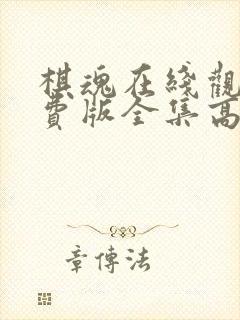 棋魂在綫觀
費版全集高
章傳法